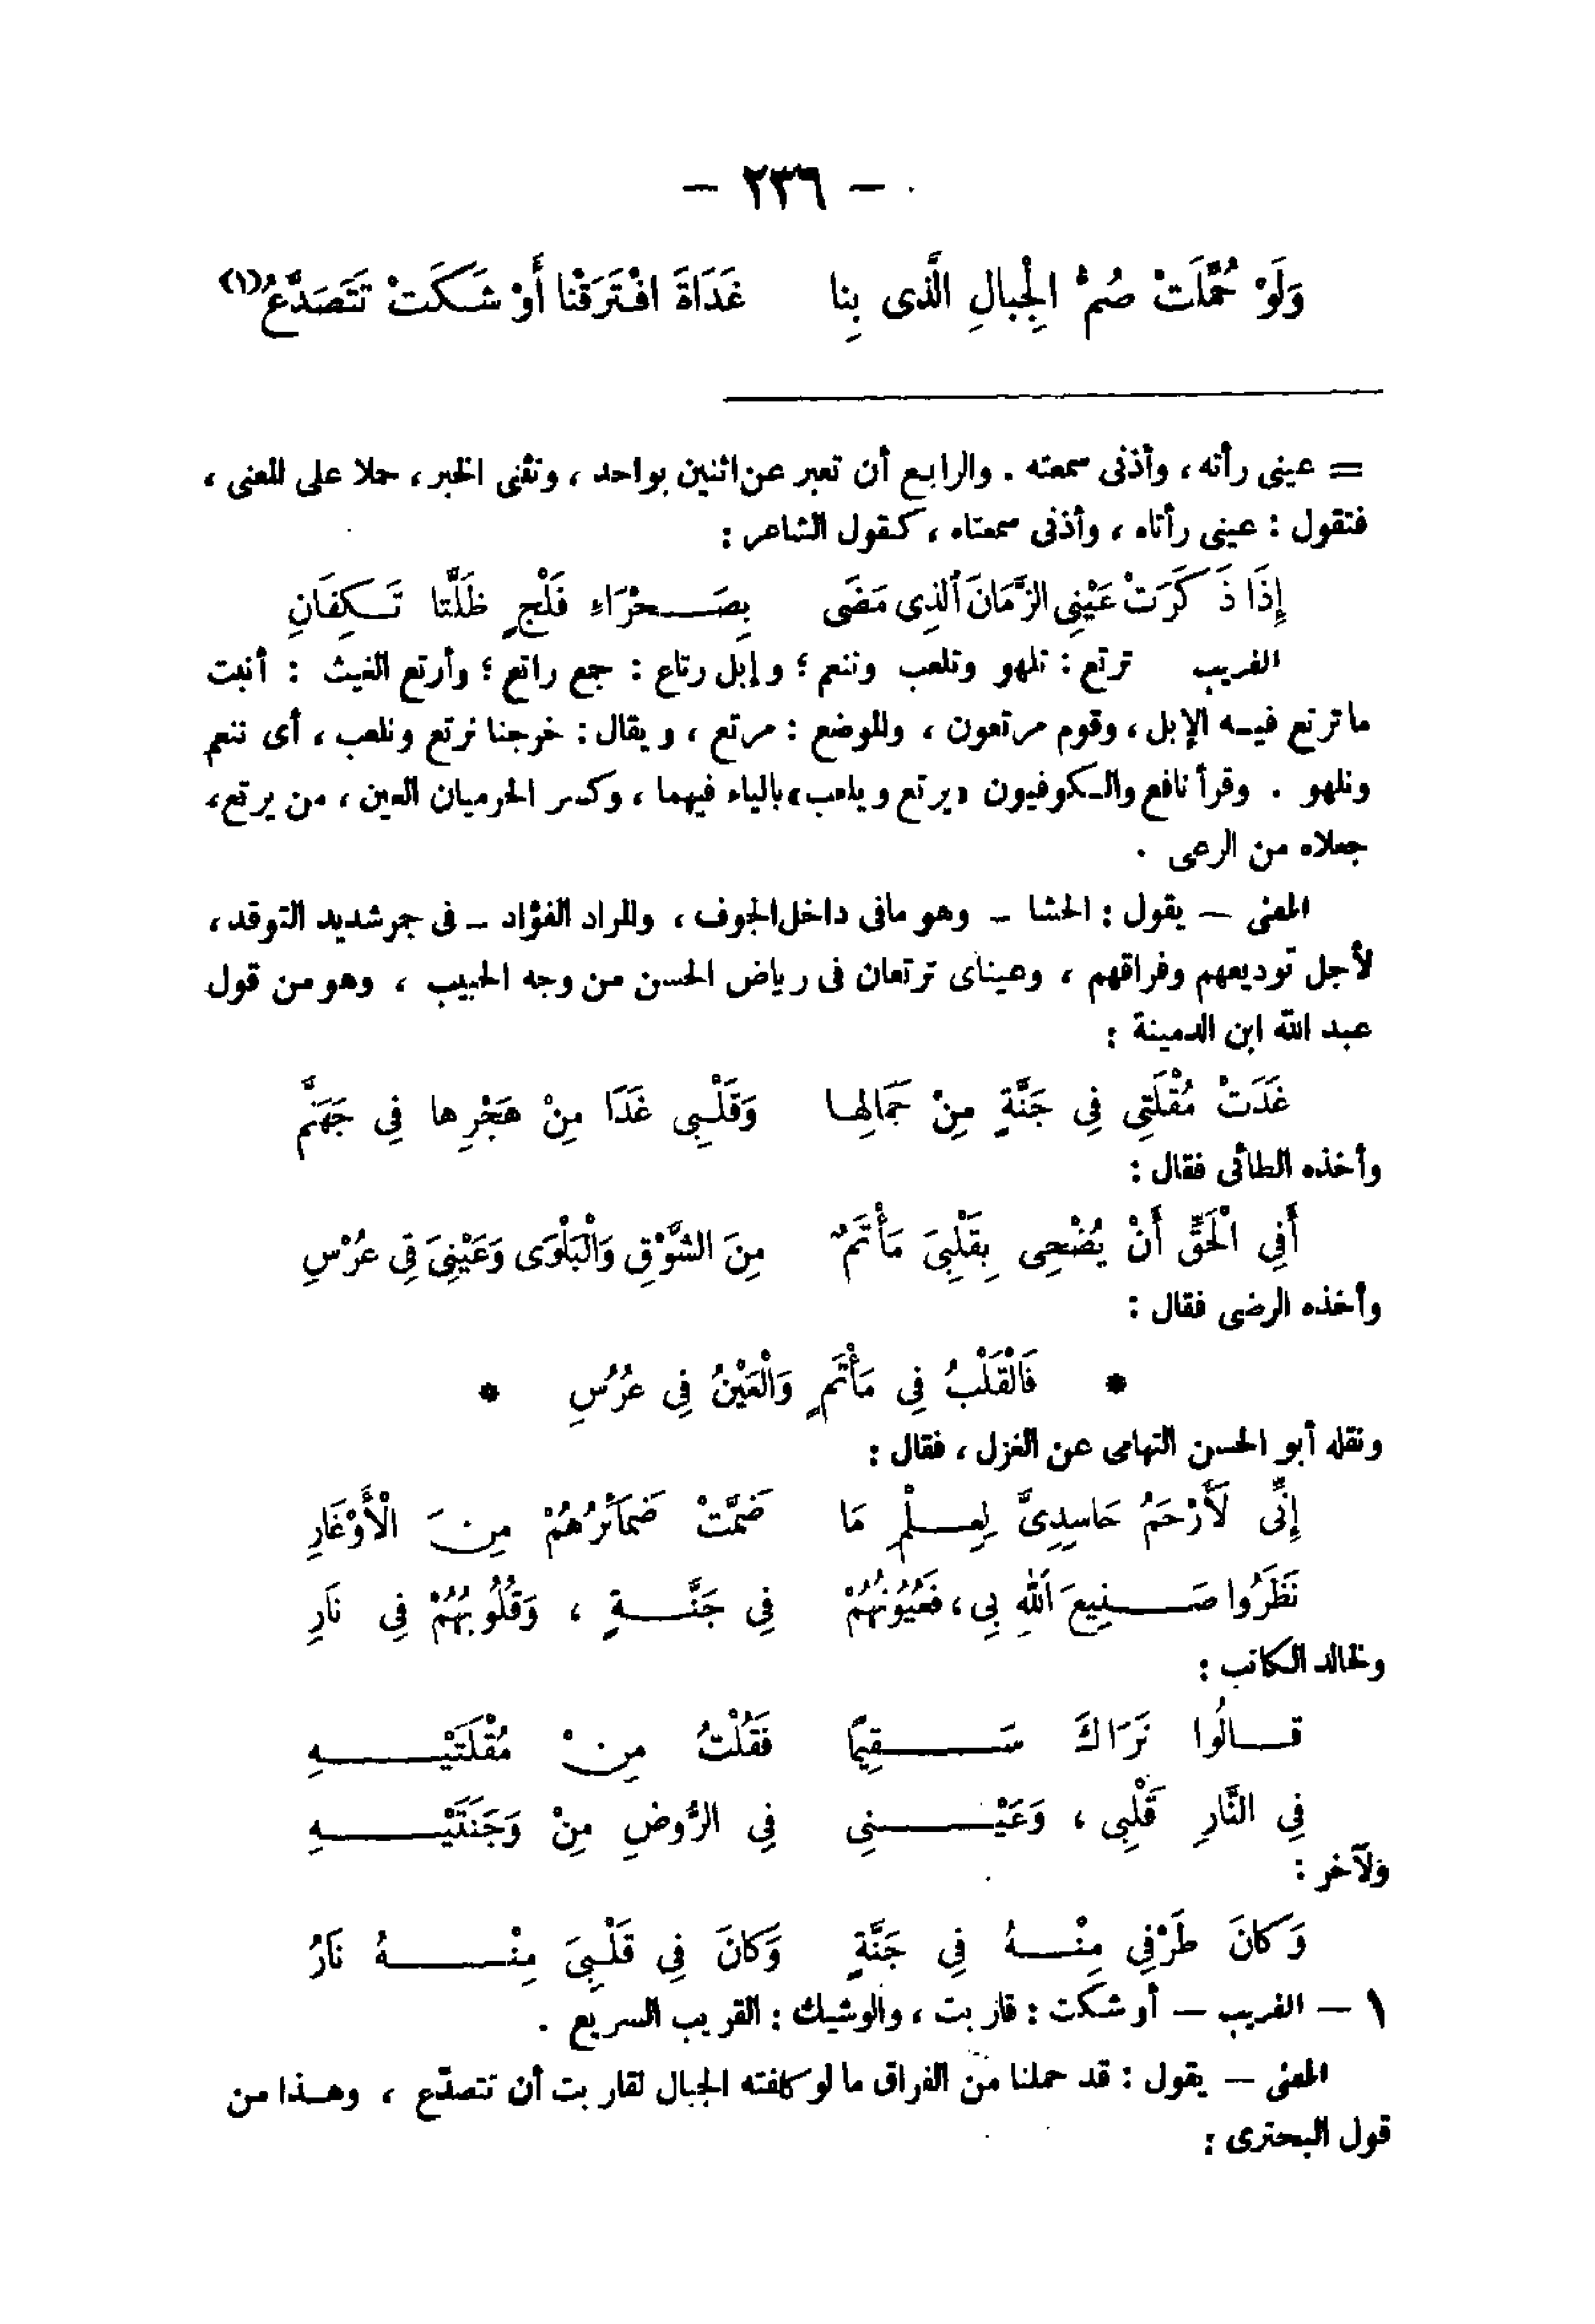 - ٢٣٦ -
وَلَوْ حُمِّلَتْ صُمُّ الْجِبالِ الَّذى بِنا غَدَاةَ افْتَرَقْنا أَوْ شَكَتْ تَتَصَدَّعُ(١)
= عينى رأته ، وأذنى سمعته . والرابع أن تعبر عن اثنين بواحد ، وتثنى الخبر ، حملا على المعنى ،
فتقول : عينى رأتاه ، وأذنى سمعتاه ، كقول الشاعر :
إِذَا ذَكَرَتْ عَيْنِى الزَّمَانَ الَّذِى مَضَى بِصَحْرَاءِ فَلْجٍ ظَلَّتا تَكِفَانِ
الغريب ترتع : تلهو وتلعب وتنعم ؛ وإبل رتاع : جمع راتع ؛ وأرتع الغيث : أنبت
ما ترتع فيه الإبل ، وقوم مرتعون ، والموضع : مرتع ، ويقال : خرجنا نرتع ونلعب ، أى ننعم
ونلهو . وقرأ نافع والكوفيون «يرتع ويلعب» بالياء فيهما ، وكسر الحرميان العين ، من يرتع ،
جعلاه من الرعى .
المعنى — يقول : الحشا – وهو مافى داخل الجوف ، والمراد الفؤاد – فى جمر شديد التوقد ،
لأجل توديعهم وفراقهم ، وعيناى ترتعان فى رياض الحسن من وجه الحبيب ، وهو من قول
عبد الله ابن الدمينة :
غَدَتْ مُقْلَتِى فِى جَنَّةٍ مِنْ جَمَالِها وَقَلْبِى غَدَا مِنْ هَجْرِها فِى جَهَنَّمِ
وأخذه الطائى فقال :
أَفِى الْحَقِّ أَنْ يُضْحِى بِقَلْبِىَ مَأْتَمٌ مِنَ الشَّوْقِ وَالْبَلْوَى وَعَيْنِىَ فِى عُرْسِ
وأخذه الرضى فقال :
* فَالْقَلْبُ فِى مَأْتَمٍ وَالْعَيْنُ فِى عُرُسِ *
ونقله أبو الحسن التهامى عن الغزل ، فقال :
إِنِّى لَأَرْحَمُ حَاسِدِىَّ لِعِلْمِ مَا ضَمَّتْ ضَمَائرُهُمْ مِنَ الْأَوْغَارِ
نَظَرُوا صَنِيعَ اللهِ بِى ، فَعُيُونُهُمْ فِى جَنَّةٍ ، وَقُلُوبُهُمْ فِى نَارِ
ولخالد الكاتب :
قالُوا نَرَاكَ سَقِيمًا فَقُلْتُ مِنْ مُقْلَتَيْهِ
فِى النَّارِ قَلْبِى ، وَعَيْنِى فِى الرَّوضِ مِنْ وَجَنَتَيْهِ
ولآخر :
وَكَانَ طَرْفِى مِنْهُ فِى جَنَّةٍ وَكَانَ فِى قَلْبِىَ مِنْهُ نَارُ
١ — الغريب — أوشكت : قاربت ، والوشيك : القريب السريع .
المعنى — يقول : قد حملنا من الفراق ما لو كلفته الجبال لقاربت أن تتصدّع ، وهذا من
قول البحترى :